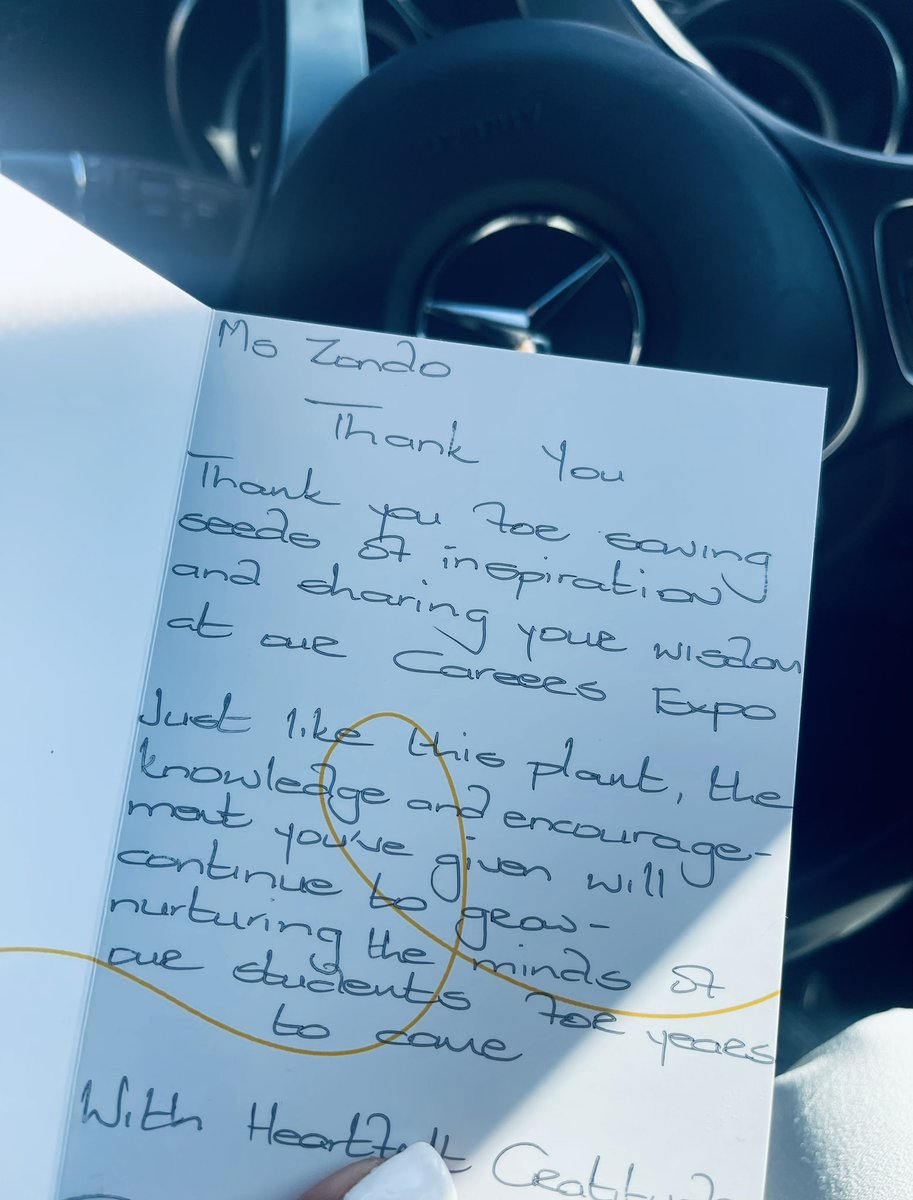 AIRBAG
Ms Zondo
Thank You
Thank you for sowing
seeds of inspiration
and sharing your wisdom
at our Careers Expo
Just like this plant, the
knowledge and encourage-
ment you've given will
continue to grow-
nurturing the minds of
our students for years
to come
With Heartfelt Gratitude